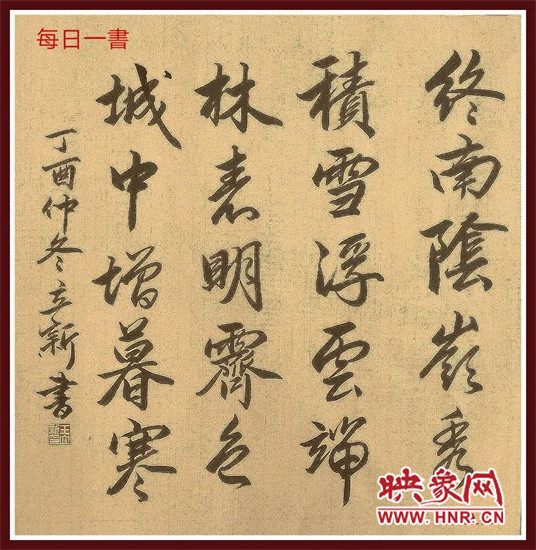 每日一書
終南陰嶺秀
積雪浮雲端
林表明霽色
城中增暮寒
丁酉仲冬立新書
映象网
WWW.HNR.CN